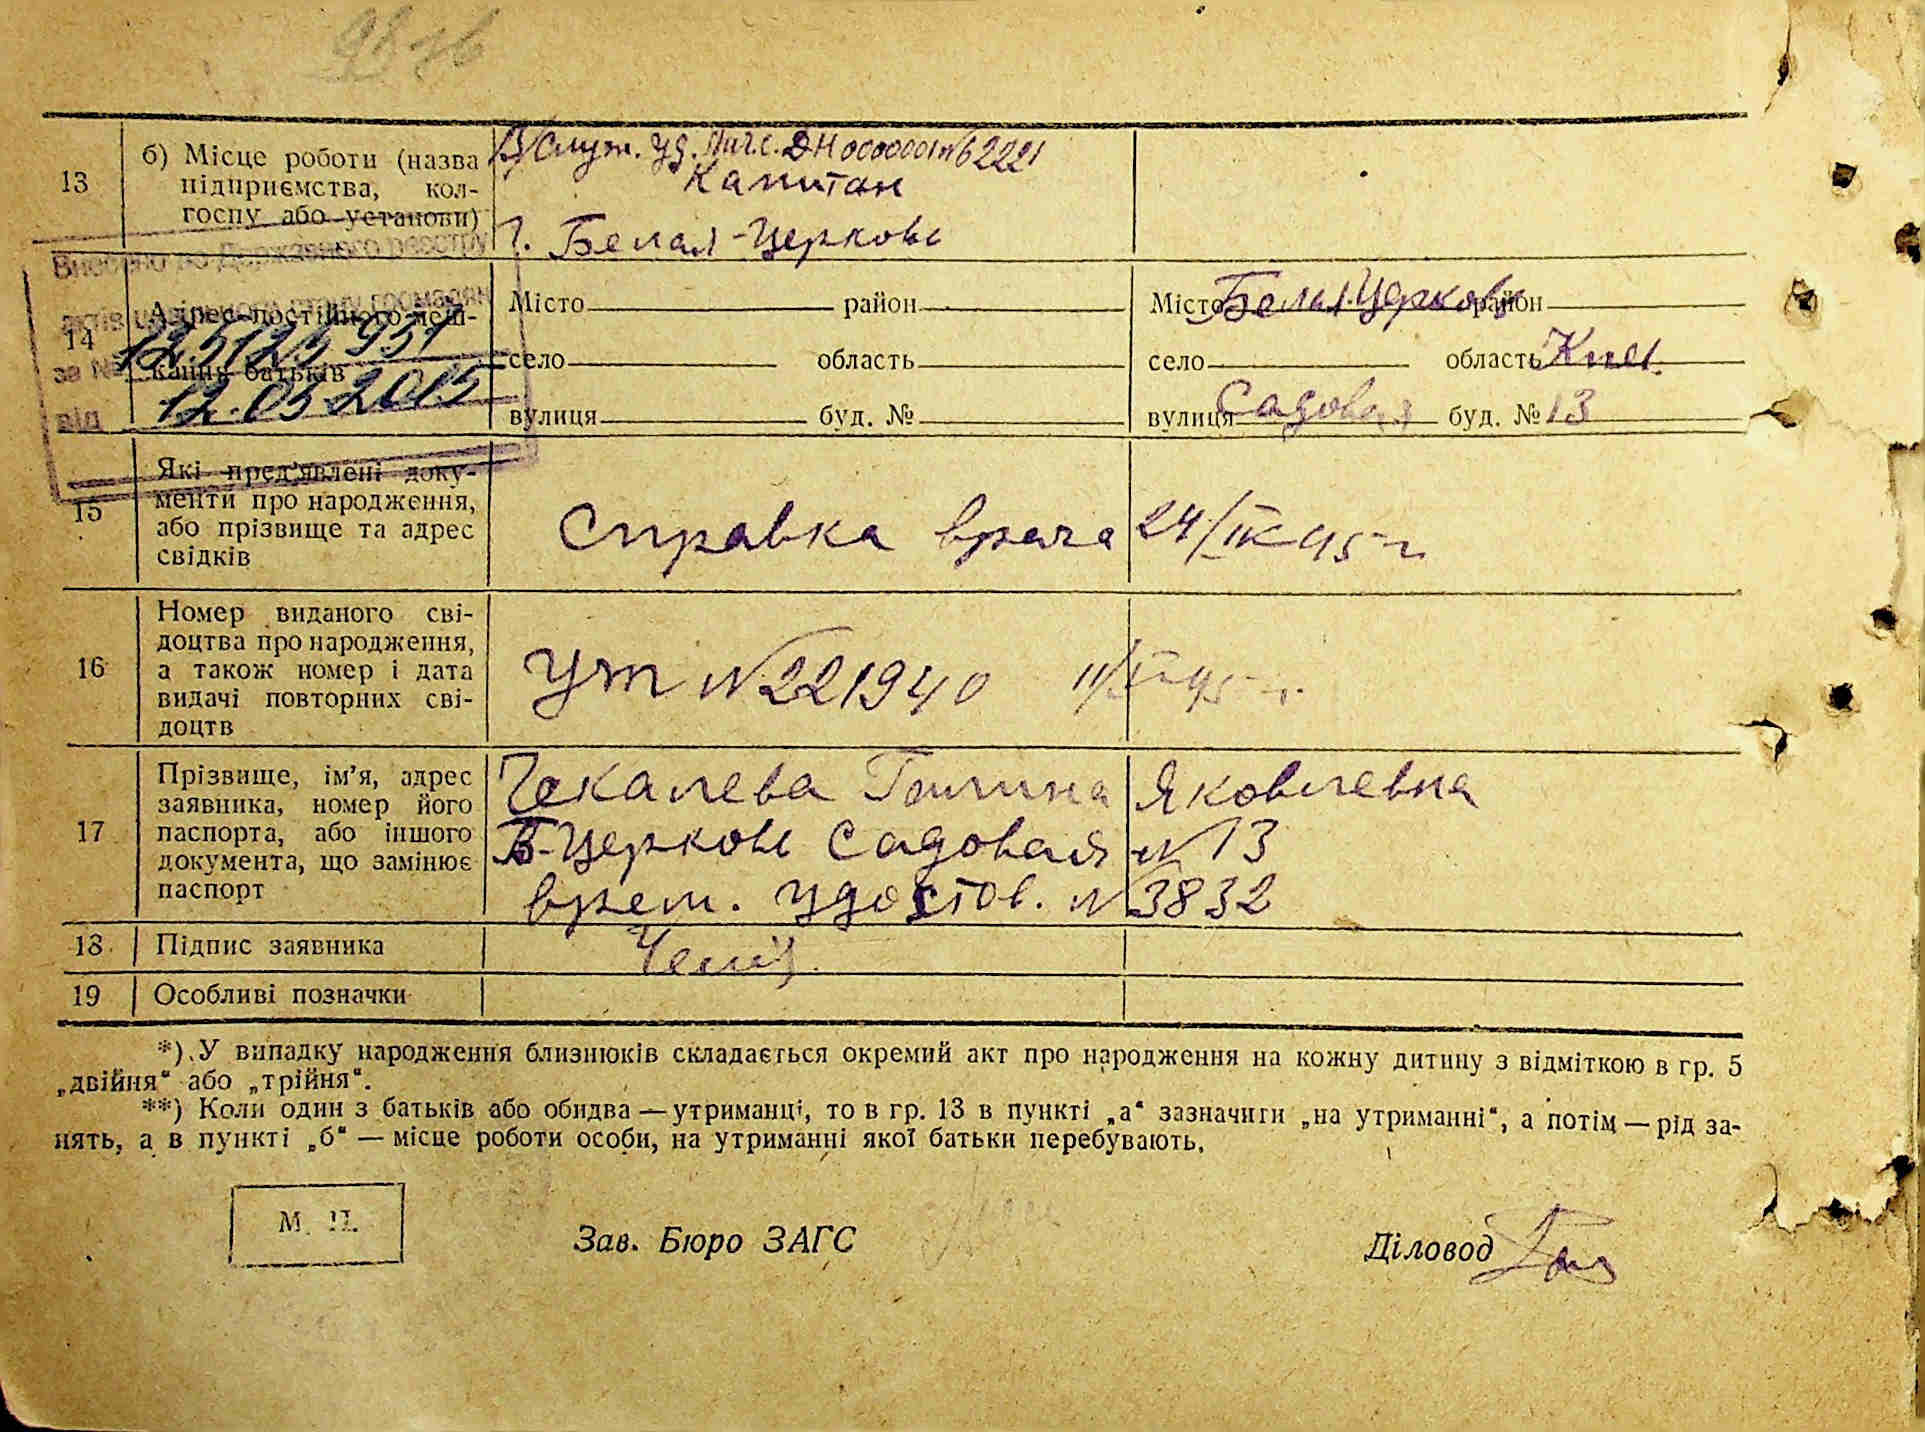 13
б) Місце роботи (назва
підприємства, кол-
госпу або установи)
Капитан
г. Белая-Церковь
Внесено до Державного реєстру
актів цивільного стану громадян
за №
125125 951
від 12.05.2015
14
Адрес постійного меш-
кання батьків
Місто район
село область
вулиця буд. №
Місто Белая-Церковь район
село область Киев.
вулиця Садовая буд. № 13
15
Які пред'явлені доку-
менти про народження,
або прізвище та адрес
свідків
Справка врача 24/IX-45 г.
16
Номер виданого сві-
доцтва про народження,
а також номер і дата
видачі повторних сві-
доцтв
УТ №221940
17
Прізвище, ім'я, адрес
заявника, номер його
паспорта, або іншого
документа, що замінює
паспорт
Чекалева Галина Яковлевна
Б-Церковь Садовая №13
врем. удостов. №3832
18
Підпис заявника
19
Особливі позначки
*) У випадку народження близнюків складається окремий акт про народження на кожну дитину з відміткою в гр. 5
„двійня“ або „трійня“.
**) Коли один з батьків або обидва — утриманці, то в гр. 13 в пункті „а“ зазначити „на утриманні“, а потім — рід за-
нять, а в пункті „б“ — місце роботи особи, на утриманні якої батьки перебувають.
М. П.
Зав. Бюро ЗАГС
Діловод